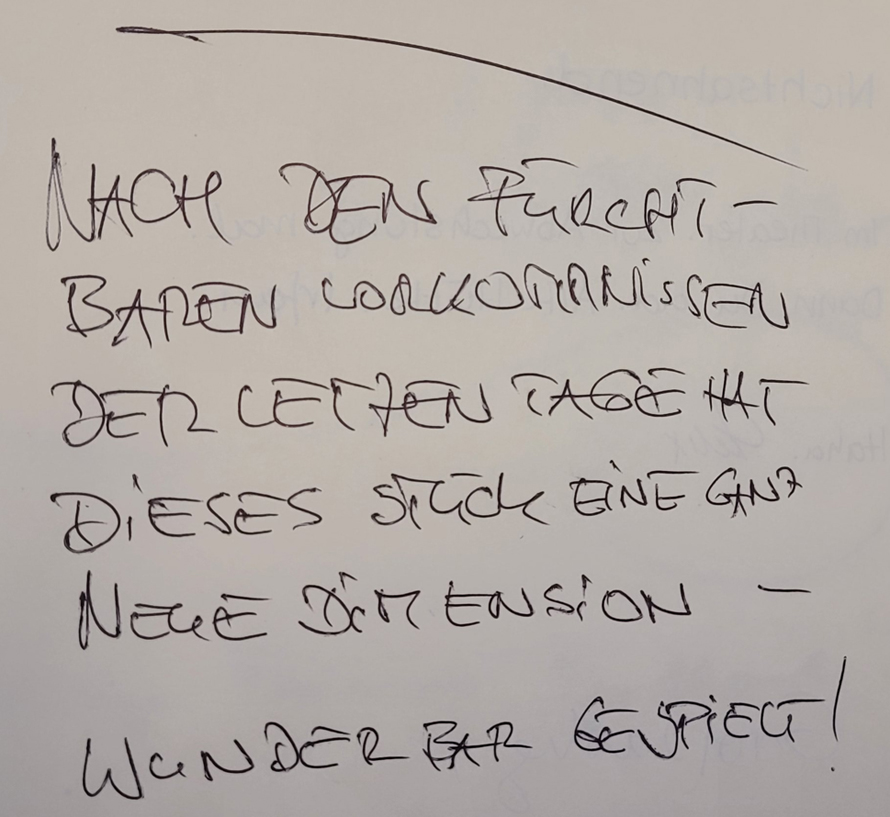 NACH DEN FÜRCHT-
BAREN VORKOMMNISSEN
DER LETZEN TAGE HAT
DIESES STÜCK EINE GANZ
NEUE DIMENSION –
WUNDERBAR GESPIELT!